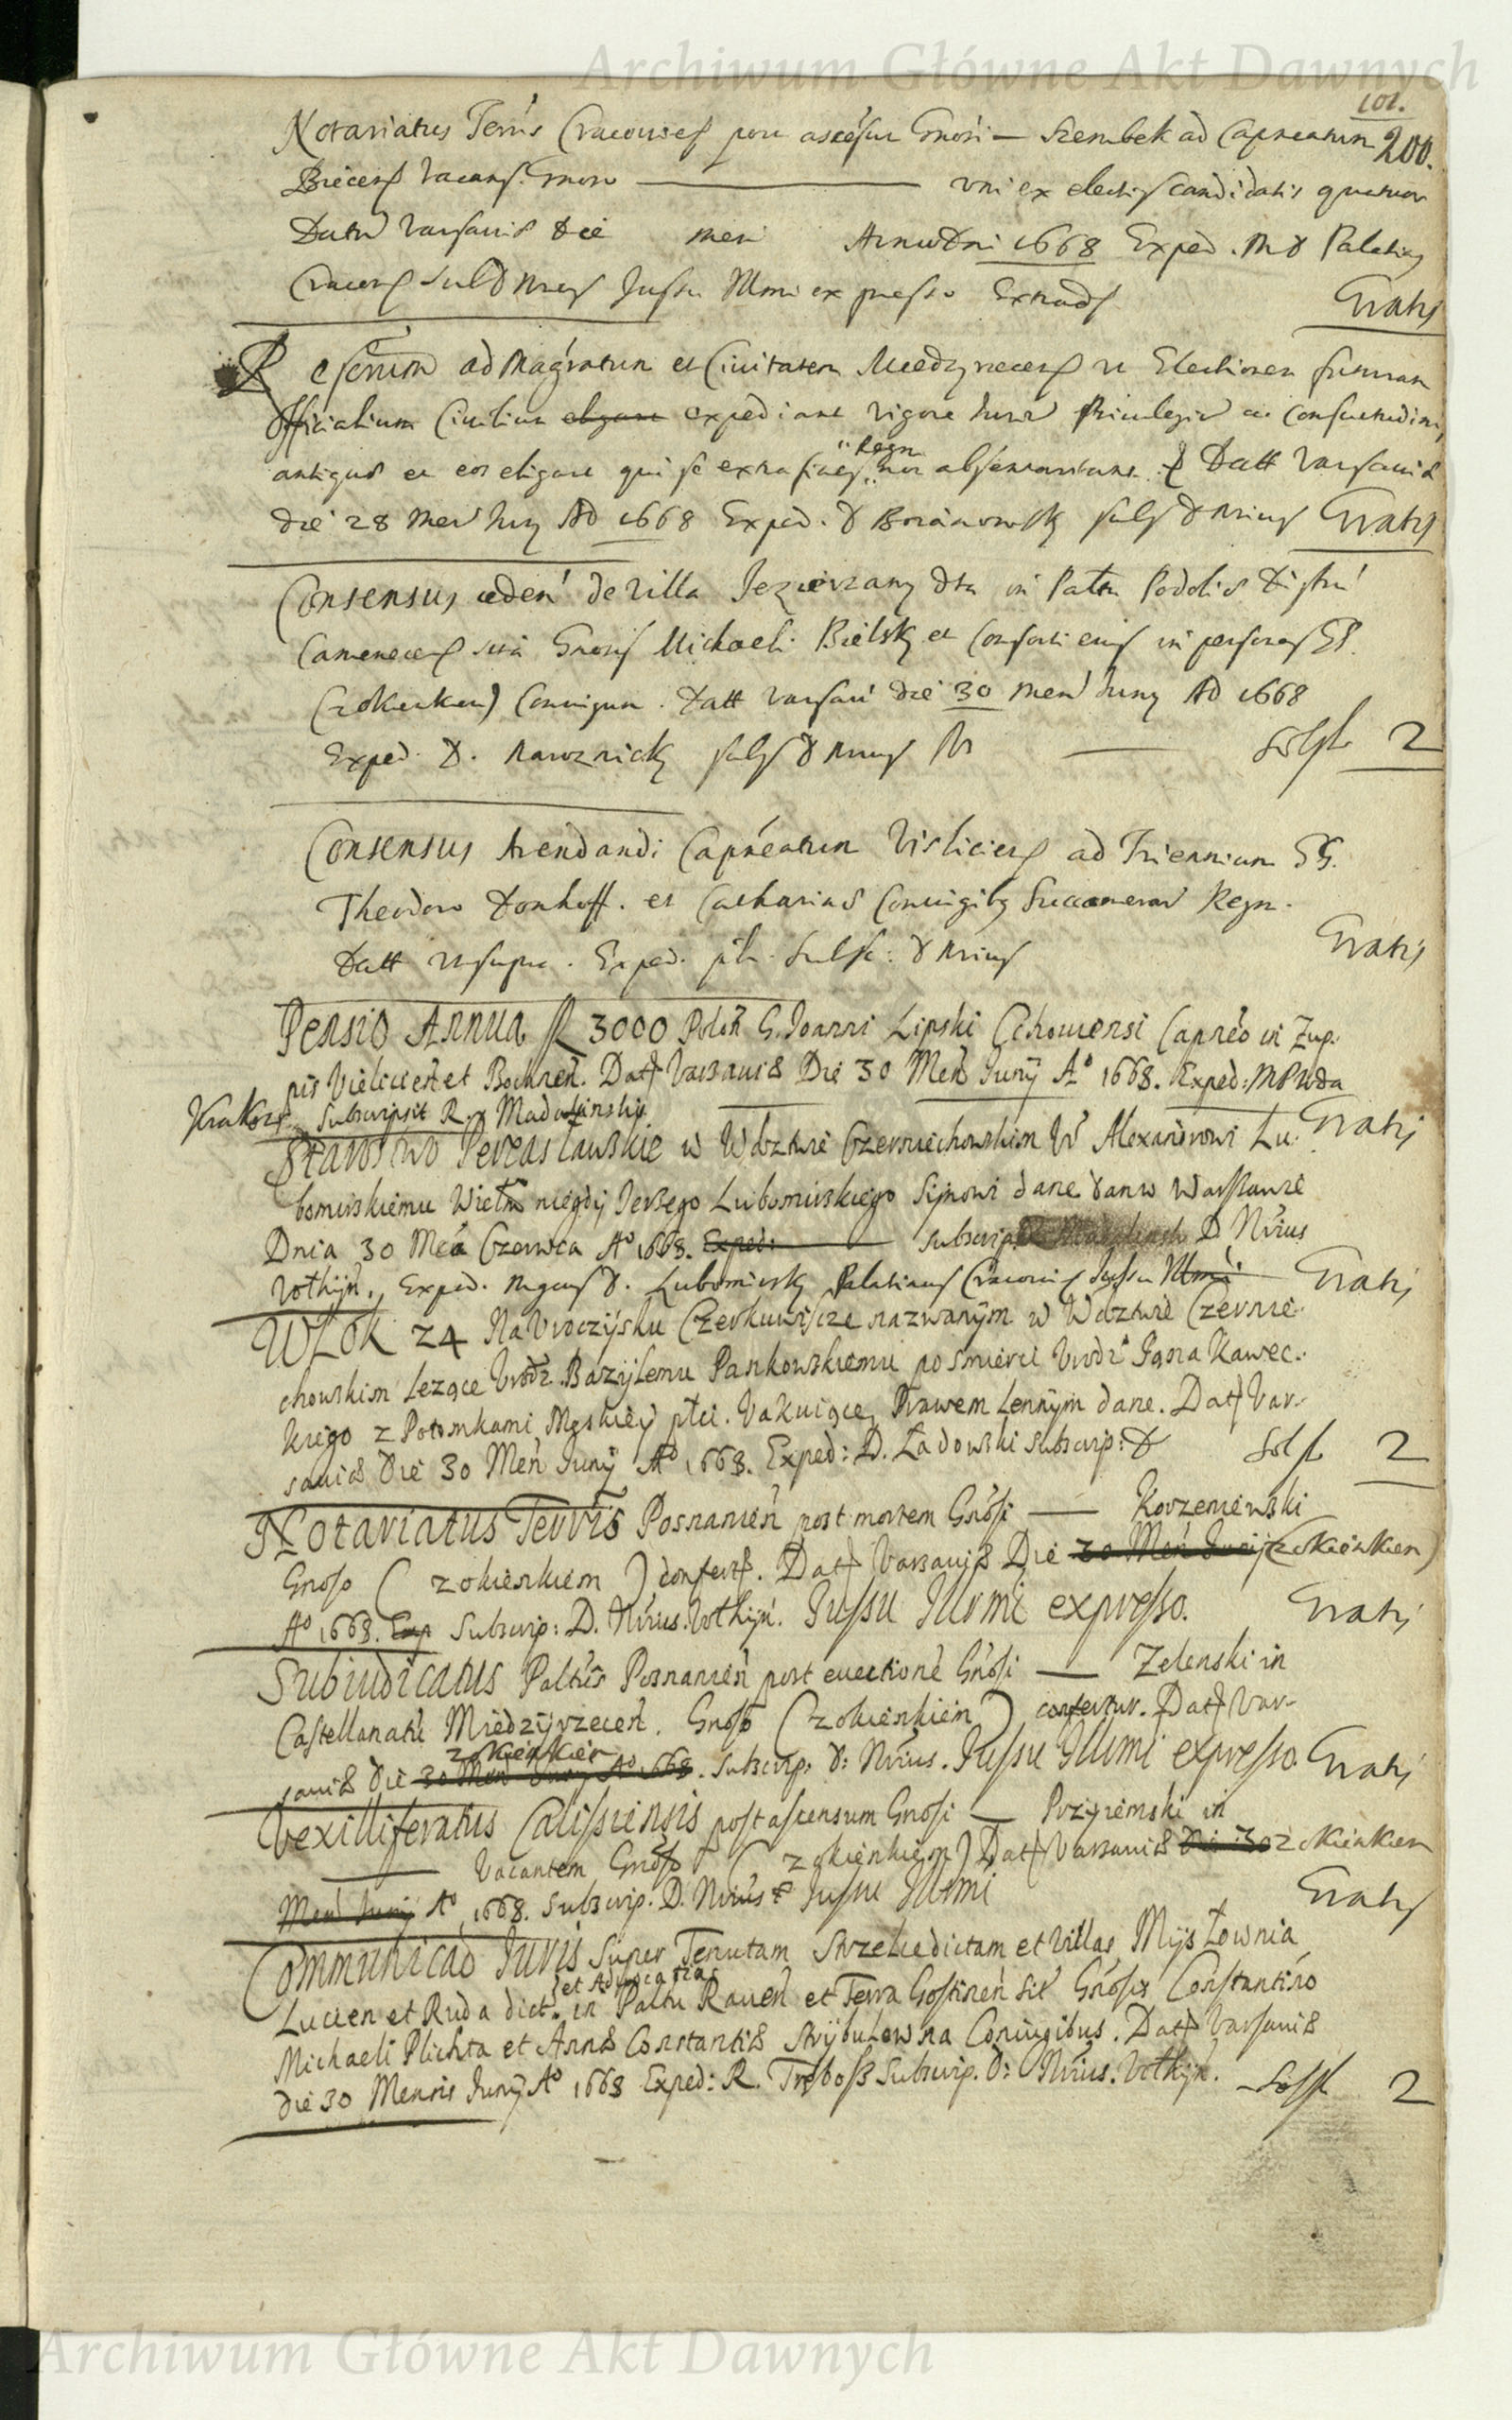 Archiwum Główne Akt Dawnych
101.
200.
Notariatus Terris Cracovien post ascesum Gnosi — Szembek ad Capneatum
Biecens vacans. Gnoso — uni ex electis candidatis quatuor
Datt Varsaviæ Die mens Anno Dni 1668 Exped. M D Palatin
Cracovien Subs D Nrius Jussu Illmi expresso Extrads
Gratis
Rescriptum ad Magratum et Civitatem Miedzyrzecens ut Electionem futuram
Officialium Civilium eligant expediant vigore Juris Privilegior ac Consuetudinis
Regn
antiquæ et eos eligant qui se extra fines non absentaverant. Datt Varsaviæ
die 28 Mens Juny AD 1668 Exped. D Borzanowsky subs D Nrius Gratis
Consensus ceden de Villa Jezierzany dta in Paltu Podoliæ Distri
Camenecens sita Gnosis Michaeli Bielsky et Consorti eius in personas GG.
(zokienken) Coniugum. Datt Varsavi die 30 Mens Juny AD 1668
Exped. D. Nawoznicky subs D Nrius M — Solst 2
Consensus Arendandi Capneatum Visliciens ad Triennium GG.
Theodoro Donhoff. et Catharinæ Coniugibs Succamerar Regn.
Datt ut supra. Exped. ph. Subsc: D Nrius
Gratis
Pensio Annua fl 3000 Polon G. Joanni Lipski Czchowensi Capneo in Zup-
pis Vieliccen et Bochnen. Datt Varsaviæ Die 30 Mens Junij Ao 1668. Exped: MP Wda
Krakows. Subscripsit R. Madalinski
Gratis
Starostwo Pereasławskie w Wdztwie Czerniechowskim W Alexandrowi Lu-
bomirskiemu Wielm niegdy Jerzego Lubomirskiego Synowi dane dano w Warszawie
Dnia 30 Mca Czerwca Ao 1668. Exped: — subscrip. D Nrius
Vothyn., Exped. Mgcus D. Lubomirsky Palatinus Cracovien Jussu Illmi
Gratis
WŁOK 24 Na Uroczysku Czerkuwiscze nazwanym w Wdztwie Czernie-
chowskim lezące Urodz. Bazylemu Pankowskiemu po smierci Urodz Jana Kawec-
kiego z Potomkami Męskiey płci. Vakuiące, Prawem Lennym dane. Datt Var-
saviæ Die 30 Men Junij Ao 1668. Exped: D. Ładowski subscrip: D Solst 2
Notariatus Terris Posnanień post mortem Gnosi — Korzeniewski
Gnoso ( zokienkiem ) confert. Datt Varsaviæ Die 30 Men Junij (zokienkien)
Ao 1668. Exp Subscrip: D. Nrius. Vothyn. Jussu Illmi expresso.
Gratis
Subiudicatus Paltus Posnanień post euectione Gnosi — Zelenski in
Castellanatu Miedzyrzeceń. Gnoso (zokienkiem) confertur. Datt Var-
zokienkien
saviæ die 30 Men Junij Ao 1668. Subscrip: D: Nrius. Jussu Illmi expresso. Gratis
Vexilliferatus Calissiensis post ascensum Gnosi — Przyiemski in
— Vacantem Gnoso ( zokienkiem) Datt Varsaviæ Die 30 zokienkiem
Men Junij Ao 1668. Subscrip. D. Nrius Jussu Illmi
Gratis
Communicao Juris super Tenutam Strzelce dictam et Villas Mysłownia
et Advocatiae
Lucien et Ruda dict. in Paltu Raueń et Terra Gostineń sit Gnosis Constantino
Michaeli Plichta et Annæ Constantiæ Strybulowna Coniugibus. Datt Varsaviæ
die 30 Mensis Junij Ao 1668 Exped: R. Trębosz Subscrip. D: Nrius. Vothyn. Solst 2
Archiwum Główne Akt Dawnych